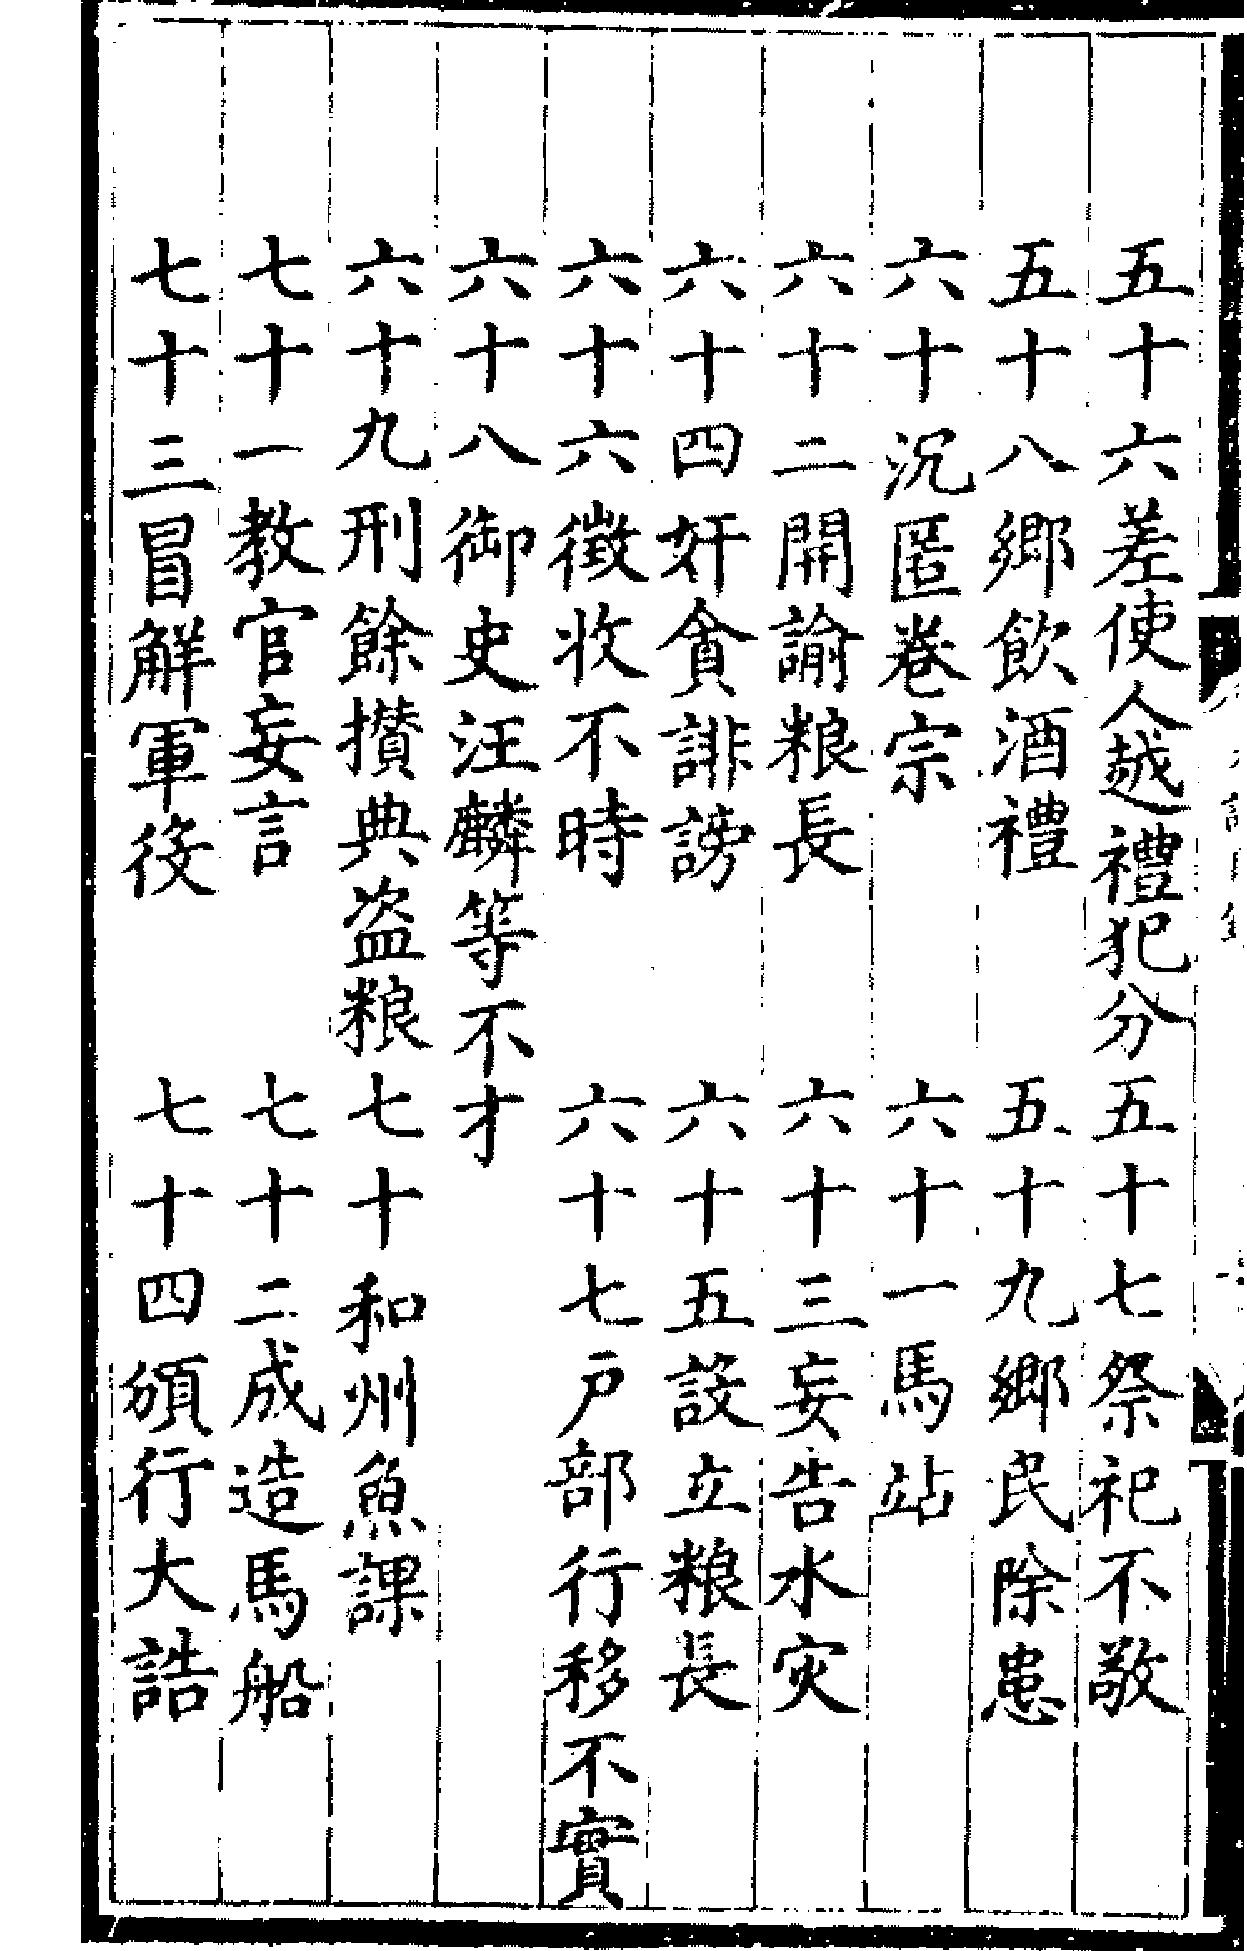 五十六差使人越禮犯分　五十七祭祀不敬
五十八鄉飲酒禮　五十九鄉民除患
六十沉匿卷宗　六十一馬站
六十二開諭粮長　六十三妄告水灾
六十四奸貪誹謗　六十五設立粮長
六十六徵收不時　六十七戶部行移不實
六十八御史汪麟等不才
六十九刑餘攅典盗粮　七十和州魚課
七十一教官妄言　七十二成造馬船
七十三冒解軍役　七十四頒行大誥